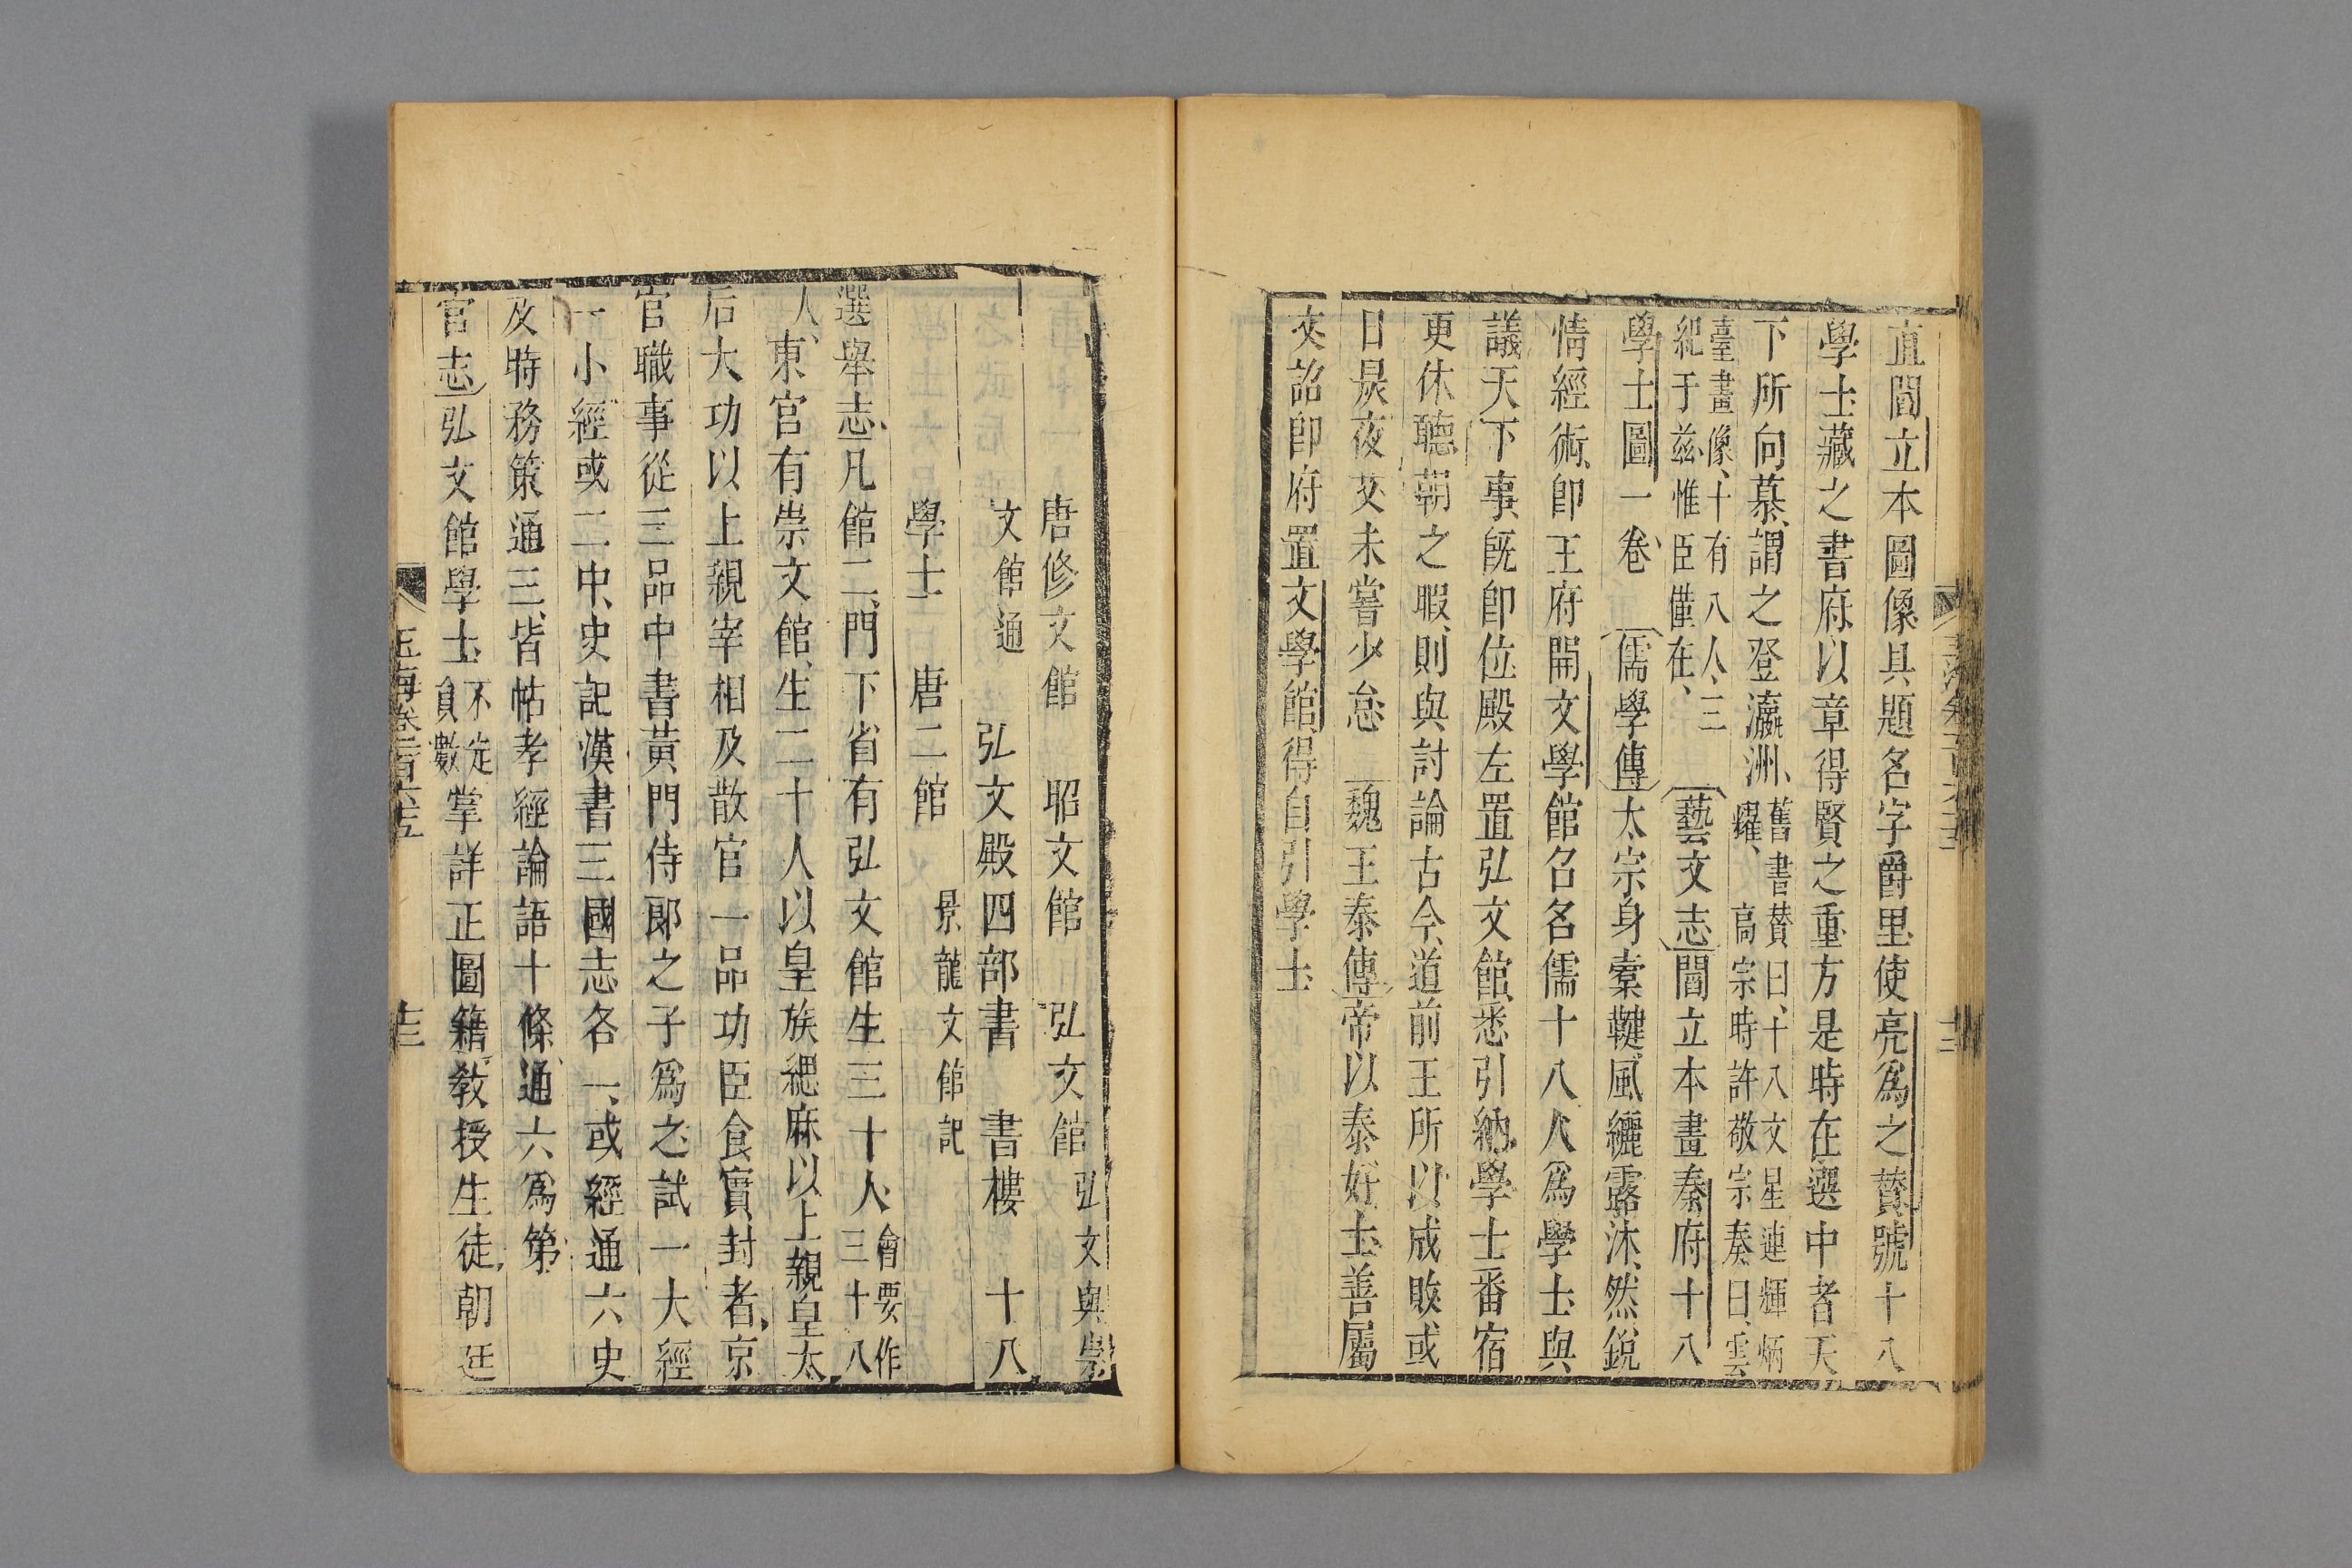 直閻立本圖像具題名字爵里使亮爲之贊號十八
學士藏之書府以章得賢之重方是時在選中者天
下所向慕謂之登瀛洲舊書贊曰十八文星連輝炳
耀高宗時許敬宗奏曰雲
臺畫像十有八人三
紀于兹惟臣僅在藝文志閻立本畫秦府十八
學士圖一卷儒學傳太宗身櫜鞬風纚露沐然銳
情經術卽王府開文學館召名儒十八人爲學士與
議天下事旣卽位殿左置弘文館悉引納學士番宿
更休聽朝之暇則與討論古今道前王所以成敗或
日昃夜艾未嘗少怠 魏王泰傳帝以泰好士善屬
文詔卽府置文學館得自引學士
唐修文館 昭文館 弘文館 弘文與崇
文館通 弘文殿四部書 書樓 十八
學士 唐二館 景龍文館記
選舉志凡館二門下省有弘文館生三十人會要作
三十八
人東宮有崇文館生二十人以皇族緦麻以上親皇太
后大功以上親宰相及散官一品功臣食實封者京
官職事從三品中書黃門侍郎之子爲之試一大經
一小經或二中史記漢書三國志各一或經通六史
及時務策通三皆帖孝經論語十條通六爲第
官志弘文館學士不定
員數掌詳正圖籍敎授生徒朝廷
玉海卷一百六十五 十三